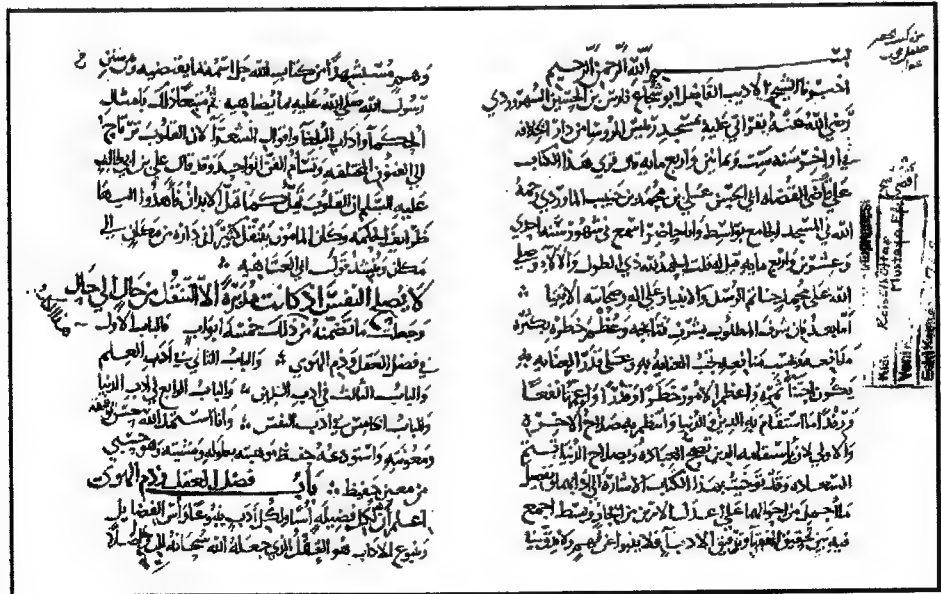 بسم الله الرحمن الرحيم
اخبرنا الشيخ الاديب الفاضل ابو شجاع فارس بن الحسين السهروردي
رضي الله عنه بقراتي عليه بمسجد من دار الخلافه
في اواخر سنه ست وثمانين واربع مايه قال قرئ هذا الكتاب
على اقضى القضاه ابي الحسن علي بن محمد بن حبيب الماوردي رحمه
الله في المسجد الجامع بواسط وانا حاضر اسمع في شهور سنه احدي
وعشرين واربع مايه قيل له قلت الحمد لله ذي الطول والالاء وصلى
الله على محمد خاتم الرسل والانبياء وعلى اله وصحابته الاتقيا
اما بعد فان شرف المطلوب بشرف نتايجه وعظم خطره بكثره
منافعه وبحسب منافعه تجب العنايه به وعلى قدر العنايه به
يكون اجتنا ثمره واعظم الامور خطرا وقدرا واعمها نفعا
ورفدا ما استقام به الدين والدنيا وانتظم به صلاح الاخره
والاولى لان باستقامه الدين تصح العباده وبصلاح الدنيا تتم
السعاده وقد توخيت بهذا الكتاب الاشاره الى ادابهما وتفصيل
ما اجمل من احوالهما على اعدل الامرين من ايجاز وبسط اجمع
فيه بين تحقيق الفقها وترقيق الادبا فلا ينبوا عن فهم ولا يدق في
وهم مستشهدا من كتاب الله جل اسمه بما يقتضيه ومن سنن
رسول الله صلى الله عليه بما يضاهيه ثم متبعا ذلك بامثال
الحكما واداب البلغا واقوال الشعرا لان القلوب ترتاح
الى الفنون المختلفه وتسام الفن الواحد وقد قال علي بن ابي طالب
عليه السلم ان القلوب تمل كما تمل الابدان فاهدوا اليها
طرايف الحكمه وكان المامون يتنقل كثيرا في داره من مكان الى
مكان وينشد قول ابي العتاهيه
لا يصلح النفس اذ كانت مدبره الا التنقل من حال الى حال
وجعلت ما تضمنه من ذلك خمسه ابواب فالباب الاول
في فضل العقل وذم الهوى والباب الثاني في ادب العلم
والباب الثالث في ادب الدين والباب الرابع في ادب الدنيا
والباب الخامس في ادب النفس وانا استمد الله حسن
ومعونته واستودعه حفظ موهبته بطوله ومشيته وهو حسبي
من معين وحفيظ باب فضل العقل وذم الهوى
اعلم ان لكل فضيله اسا ولكل ادب ينبوعا واس الفضايل
وينبوع الاداب هو العقل الذي جعله الله سبحانه للدين اصلا